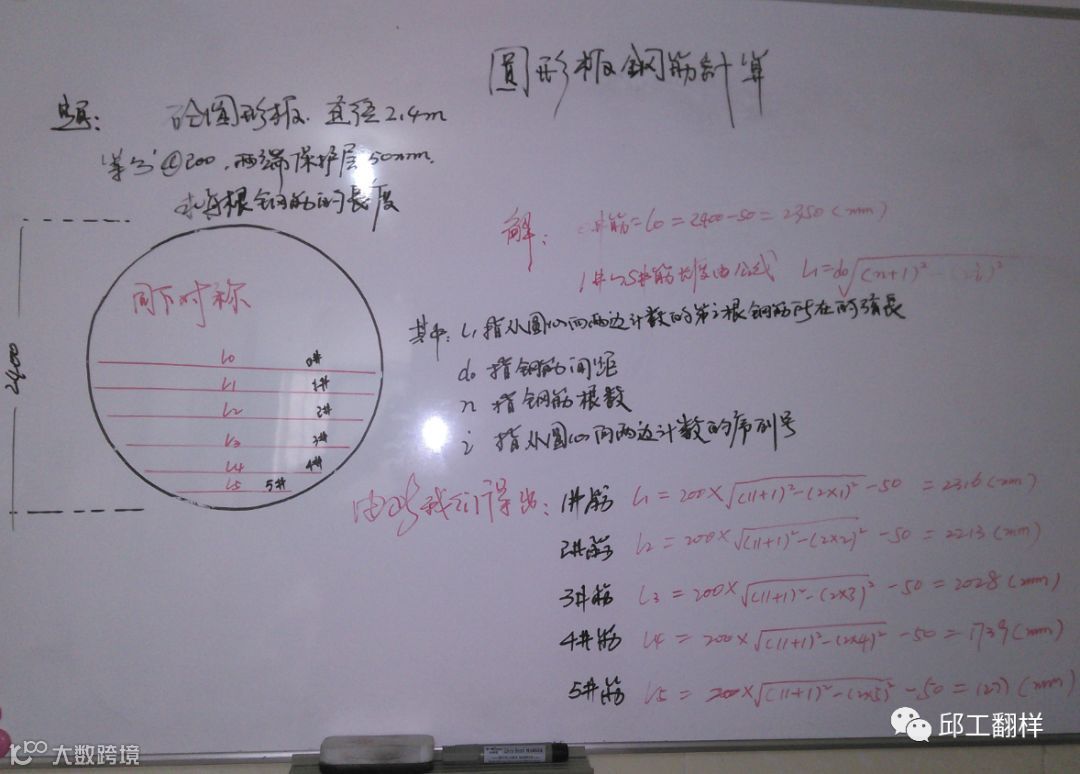 圆形板鋼筋計算
题: 砼圆形板. 直径2.4m
单向@200. 两端保护层50mm.
求每根钢筋的長度
2400
同下对称
l0 0#
l1 1#
l2 2#
l3 3#
l4 4#
l5 5#
解: 0#筋=l0=2400-50=2350(mm)
1#~5#筋长度由公式 l1=d0√(n+1)²-(2i)²
其中: l1指从圆心向两边计数的第i根钢筋所在的弦長
d0 指钢筋间距
n 指钢筋根数
i 指从圆心向两边计数的序列号
由此我们得出: 1#筋 l1=200×√(11+1)²-(2×1)² -50 =2316(mm)
2#筋 l2=200×√(11+1)²-(2×2)² -50=2213(mm)
3#筋 l3=200×√(11+1)²-(2×3)² -50=2028(mm)
4#筋 l4=200×√(11+1)²-(2×4)² -50=1739(mm)
5#筋 l5=200×√(11+1)²-(2×5)² -50=1277(mm)
邱工翻样
大数跨境